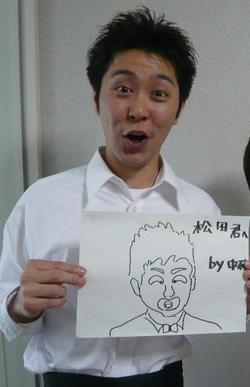 松田君
by